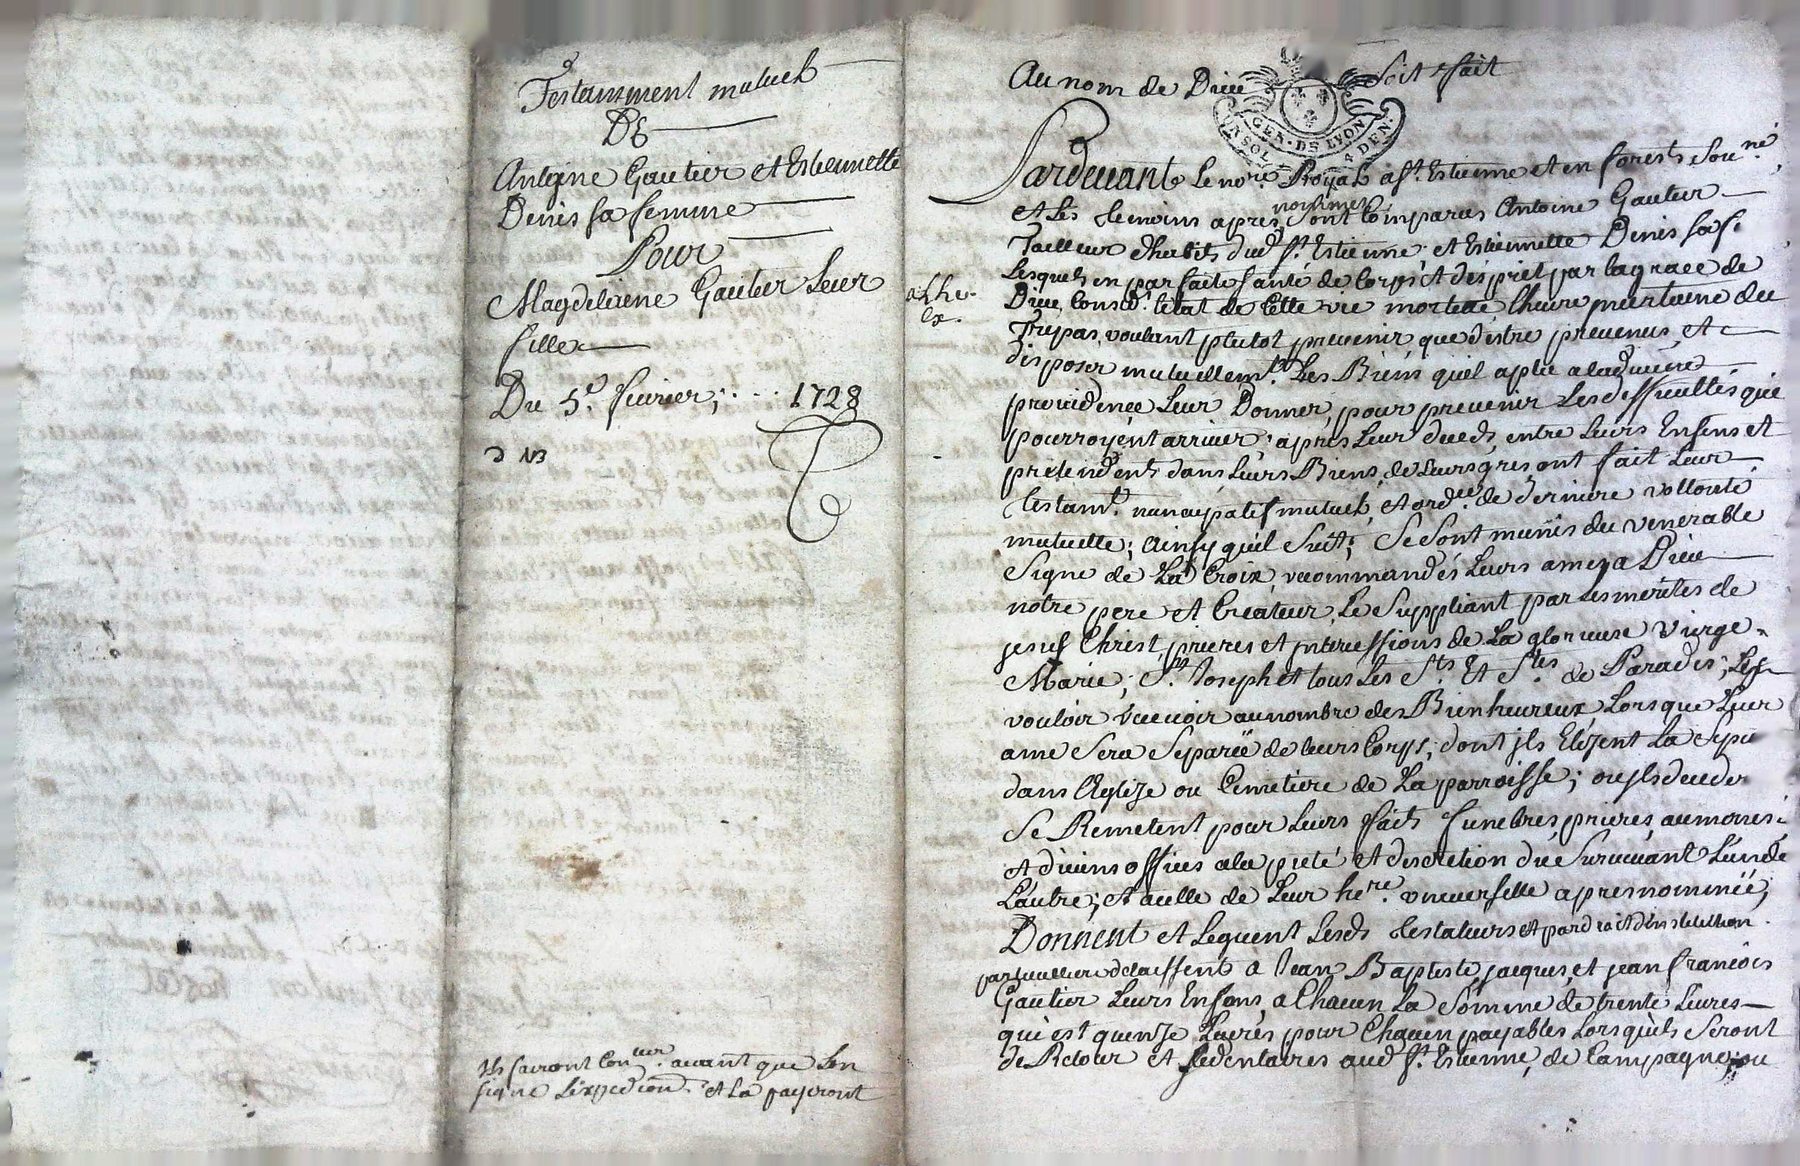 Testamment mutuel
DE
Antoine Gautier et Estiennette
Denis sa femme
Pour
Magdeleine Gautier Leur
fille
Du 5e. fevrier; 1728
Ils sauront avant que L'on
signe L'expedion. et La payeront
Au nom de Dieu Soit fait
GEN. DE LYON
Pardevant Le nore. Royal a St. Estienne et en forests Sousné.
et Les temoins apres nommes, sont Comparus Antoine Gautier
Tailleur d'habits dud. St. Estienne; et Estiennette Denis sa fe.
Lesquels en parfaite santé de Corps et desprit par la grace de
Dieu, Consid. l'etat de Cette vie mortelle L'heure incertaine du
Trepas, voulant plutot prevenir que d'estre prevenus, et
disposer mutuellemt. des Biens quil a plu a la divine
providence Leur Donner, pour prevenir Les difficultés qui
pourroyent arriver apres Leur deceds, entre Leurs Enfens et
pretendents dans Leurs Biens, de Leurs gres ont fait Leur
testamt. nuncupatif mutuel, et ordce. de derniere vollonté
mutuelle; ainsy quil suit; Se sont munis du venerable
Signe de La Croix recommandés Leurs ames a Dieu
notre pere et Createur, Le Suppliant par Les merites de
jesus Christ, prieres et intercessions de La glorieuse vierge
Marie; St. Joseph et tous Les Sts. Et Stes. de Paradis; Les
vouloir recevoir au nombre des Bienheureux Lorsque Leur
ame Sera Separée de Leurs Corps; dont jls Elizent La Sepu
dans L'Eglize ou Cemetiere de La parroisse; ou jls deceder
Se Remetent pour Leurs faits funebres, prieres, aumones
et divins offices a la pieté et discretion du Survivant L'un de
L'autre; et a celle de Leur here. universelle apres nommée;
Donnent et Leguent Lesds. testateurs et par droit d'institution
particulliere delaissent a Jean Baptiste, jacques, et jean francois
Gautier Leurs Enfans, a Chacun La Somme de trente Livres
qui est quenze Livres pour Chacun payables Lorsqu'ils Seront
de Retour et sedentaires aud. St. Estienne, de Campagne; ou